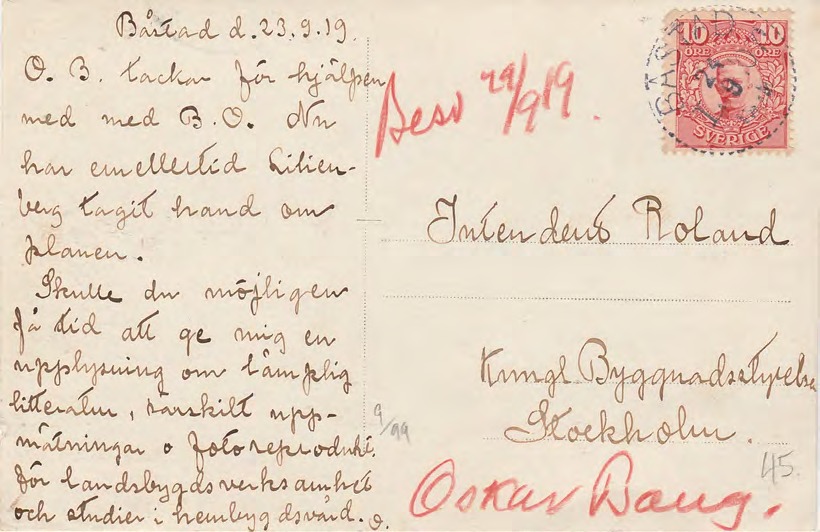 Båstad d. 23.9.19.
O. B. tackar för hjälpen
med med B. O. Nu
har emellertid Lilien-
berg tagit hand om
planen.
Skulle du möjligen
få tid att ge mig en
upplysning om lämplig
litteratur, särskilt upp-
mätningar o fotoreprodukt.
för landsbygdsverksamhet
och studier i hembygdsvård. O.
Besv 29/9 19.
10 10
ÖRE ÖRE
SVERIGE
BÅSTAD
Intendent Roland
Kungl Byggnadsstyrelse
Stockholm.
9/99
45.
Oskar Baug.